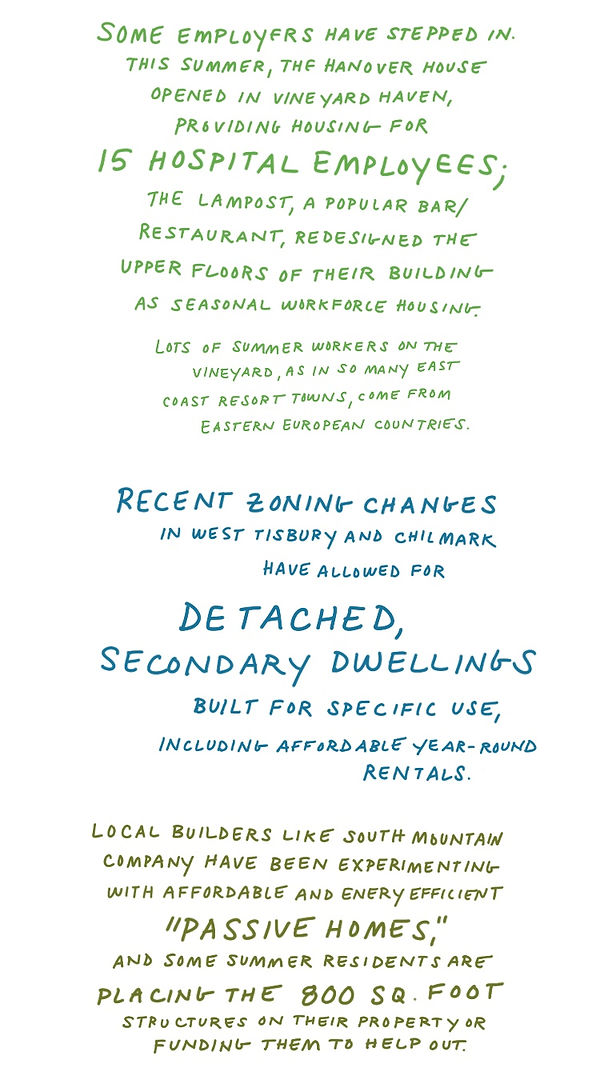 SOME EMPLOYERS HAVE STEPPED IN.
THIS SUMMER, THE HANOVER HOUSE
OPENED IN VINEYARD HAVEN,
PROVIDING HOUSING FOR
15 HOSPITAL EMPLOYEES;
THE LAMPOST, A POPULAR BAR/
RESTAURANT, REDESIGNED THE
UPPER FLOORS OF THEIR BUILDING
AS SEASONAL WORKFORCE HOUSING.
LOTS OF SUMMER WORKERS ON THE
VINEYARD, AS IN SO MANY EAST
COAST RESORT TOWNS, COME FROM
EASTERN EUROPEAN COUNTRIES.
RECENT ZONING CHANGES
IN WEST TISBURY AND CHILMARK
HAVE ALLOWED FOR
DETACHED,
SECONDARY DWELLINGS
BUILT FOR SPECIFIC USE,
INCLUDING AFFORDABLE YEAR-ROUND
RENTALS.
LOCAL BUILDERS LIKE SOUTH MOUNTAIN
COMPANY HAVE BEEN EXPERIMENTING
WITH AFFORDABLE AND ENERY EFFICIENT
"PASSIVE HOMES,"
AND SOME SUMMER RESIDENTS ARE
PLACING THE 800 SQ. FOOT
STRUCTURES ON THEIR PROPERTY OR
FUNDING THEM TO HELP OUT.